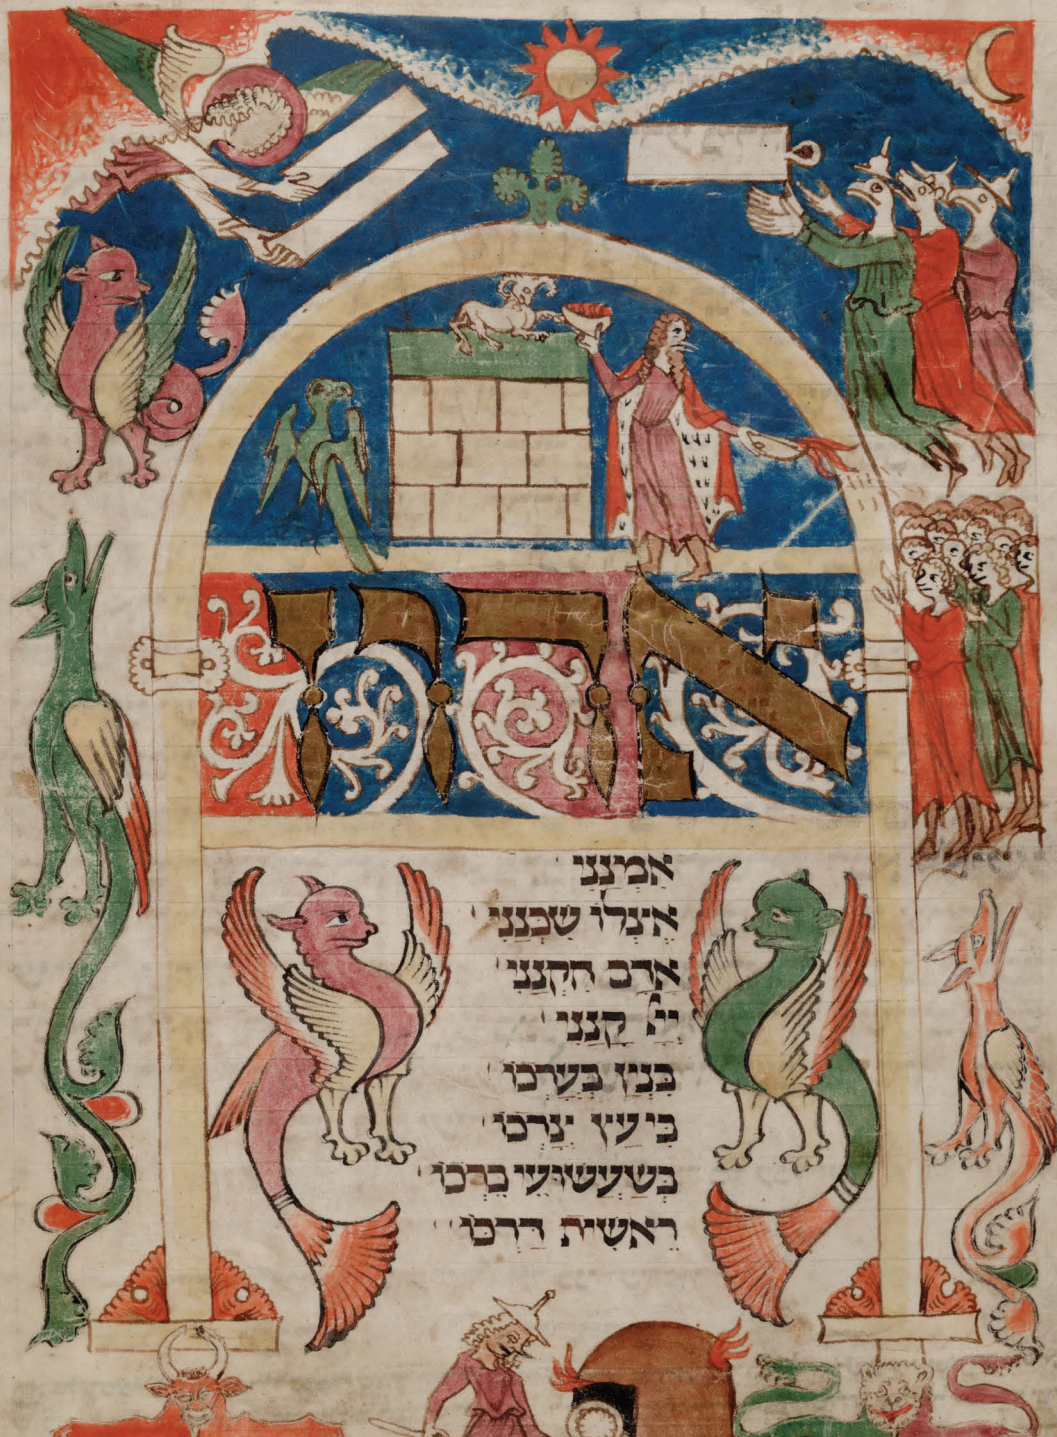 אדון
אמנני
אצלו שכנני
אדם הקנני
יי קנני
בנין בשרכו
ביעץ יצרכו
בשעשועי ברכו
ראשית דרכו